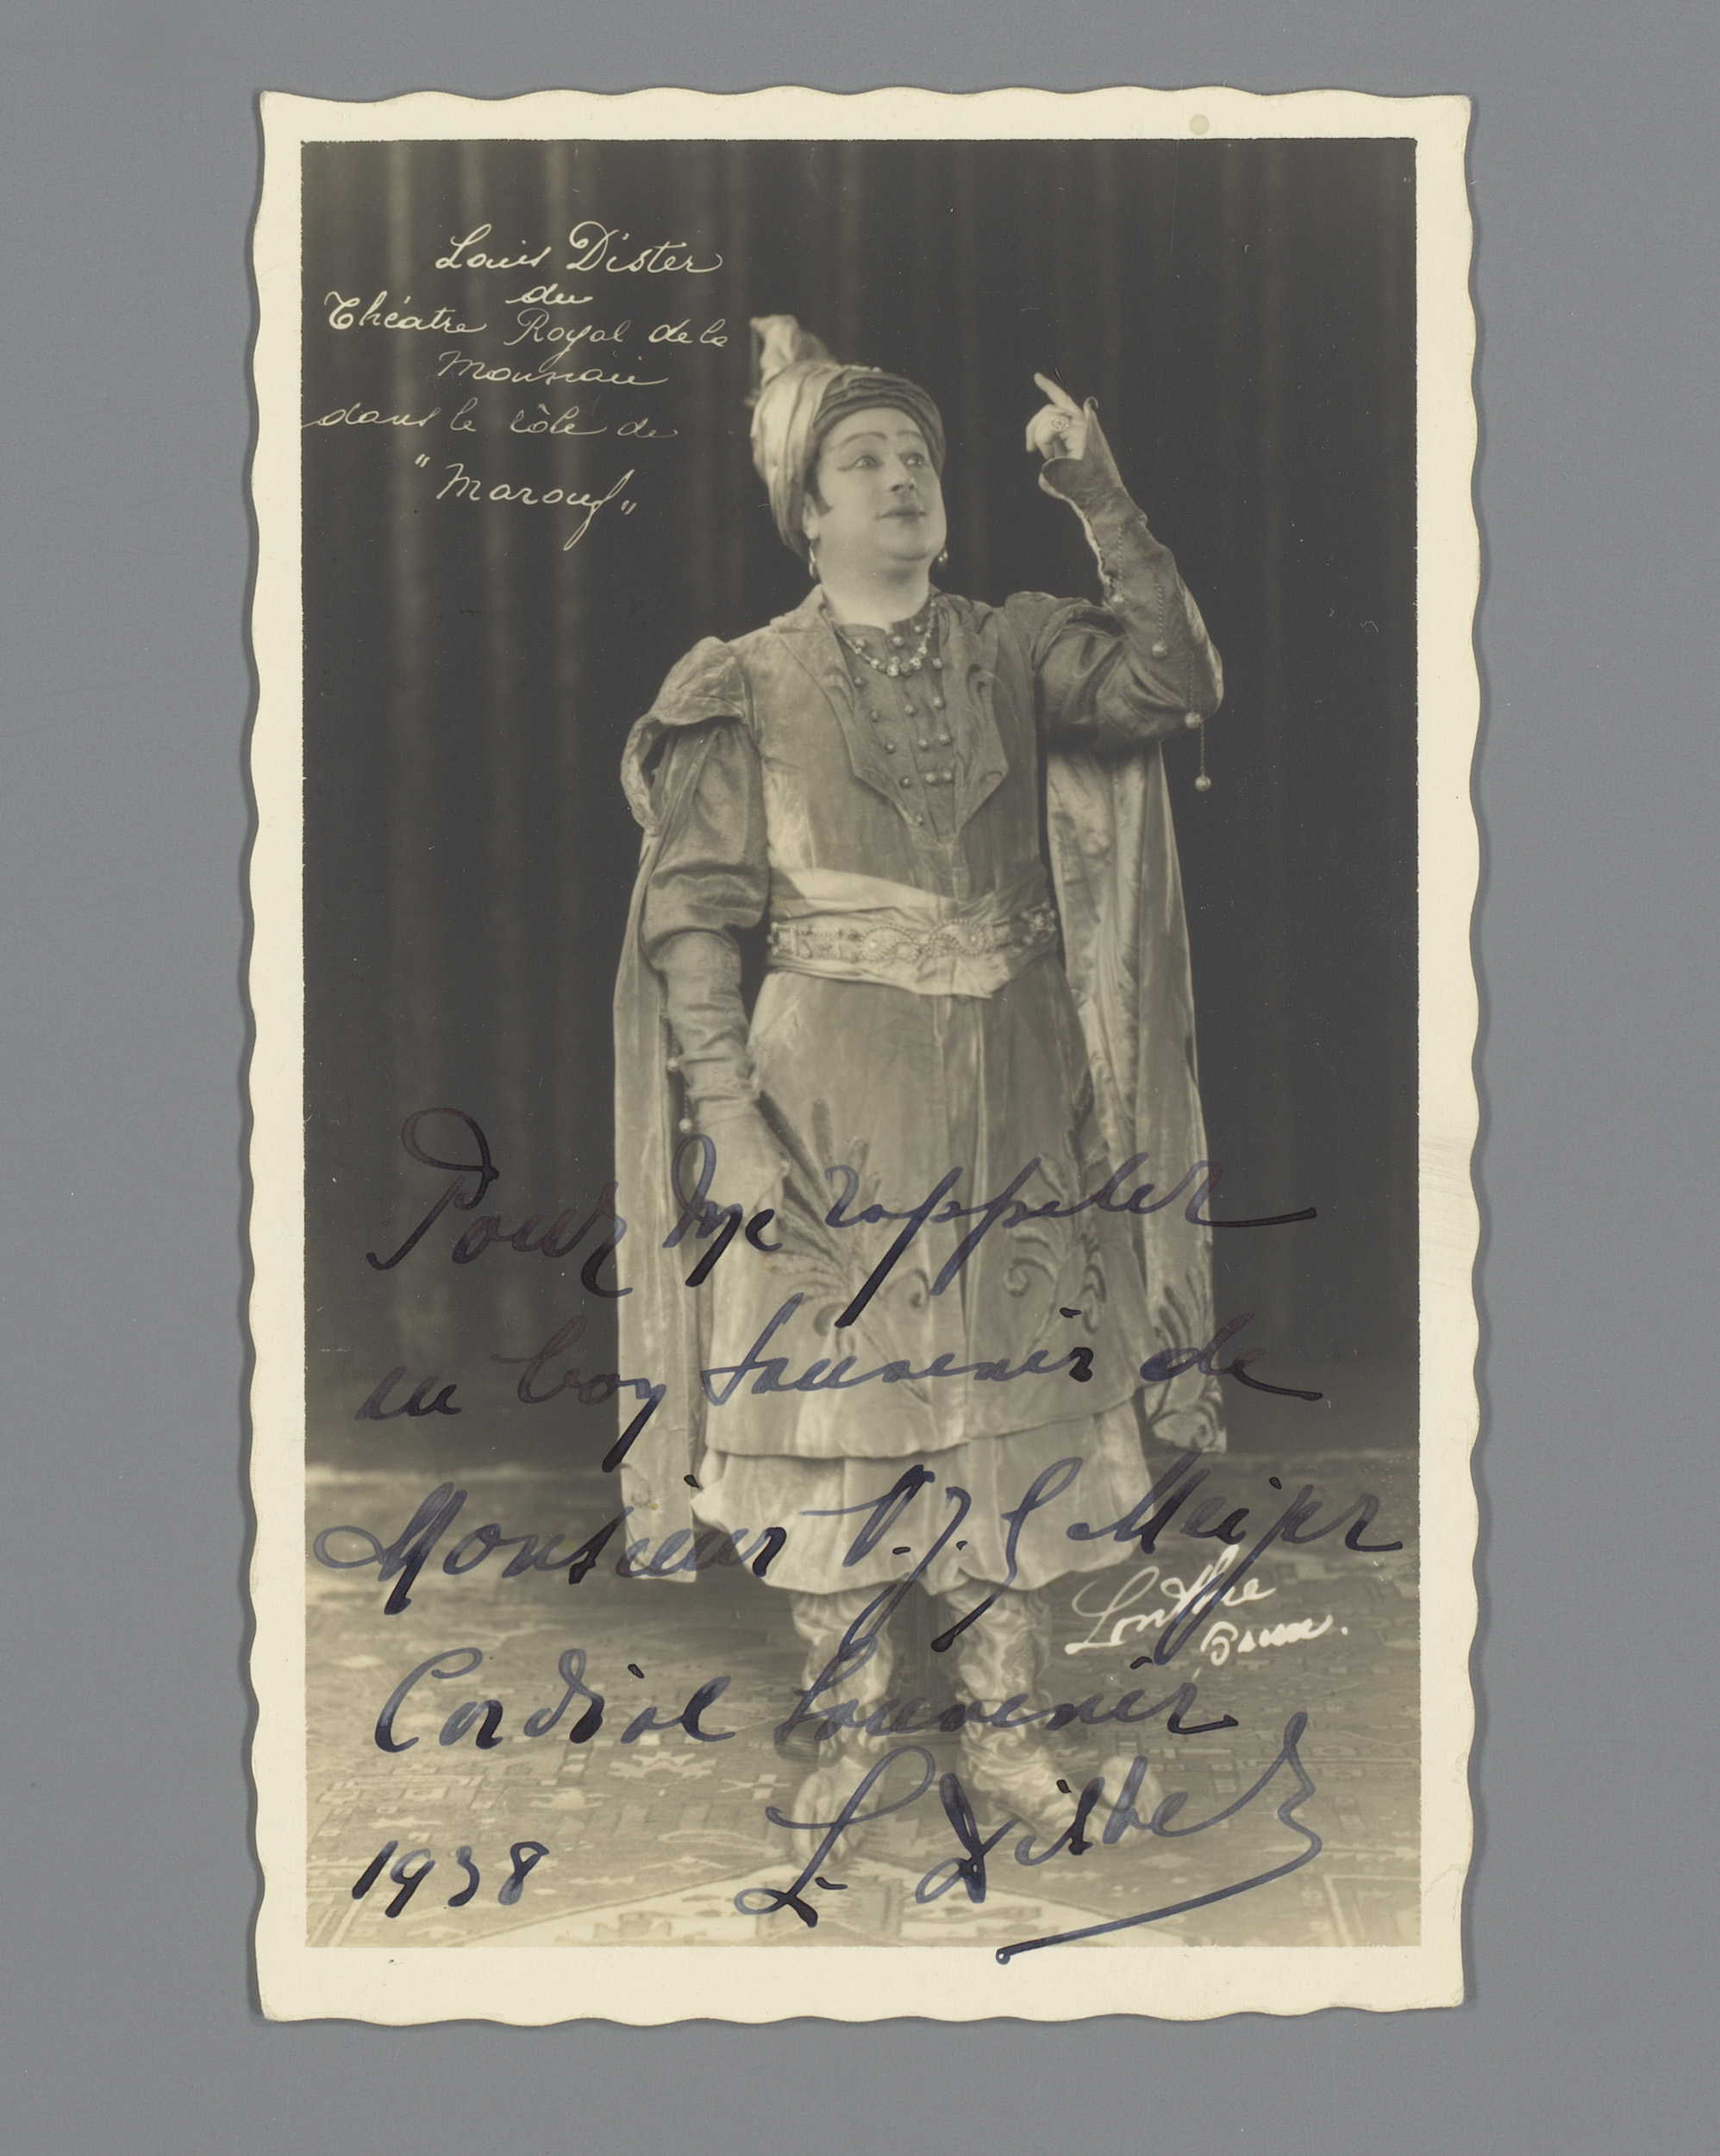 Louis Dister
du
Théatre Royal de la
Monnaie
dans le rôle de
"Marouf"
Pour me rappeler
au bon souvenir de
Monsieur V.J.G Meijer
Cordial Souvenir
1938 L. Dister